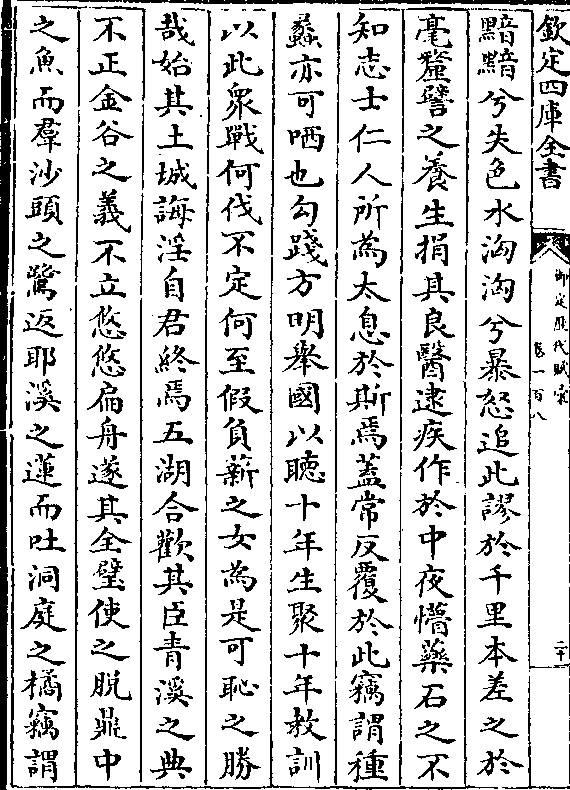 欽定四庫全書
御定歷代賦彙
卷一百八
二十
黯黯兮失色水洶洶兮暴怒追此謬於千里本差之於
毫釐譬之養生捐其良醫逮疾作於中夜懵藥石之不
知志士仁人所為太息於斯焉蓋常反覆於此竊謂種
蠡亦可哂也勾踐方明舉國以聽十年生聚十年教訓
以此衆戰何伐不定何至假負薪之女為是可恥之勝
哉始其土城誨淫自君終焉五湖合歡其臣青溪之典
不正金谷之義不立悠悠扁舟遂其全璧使之脫鼎中
之魚而羣沙頭之鷺返耶溪之蓮而吐洞庭之橘竊謂